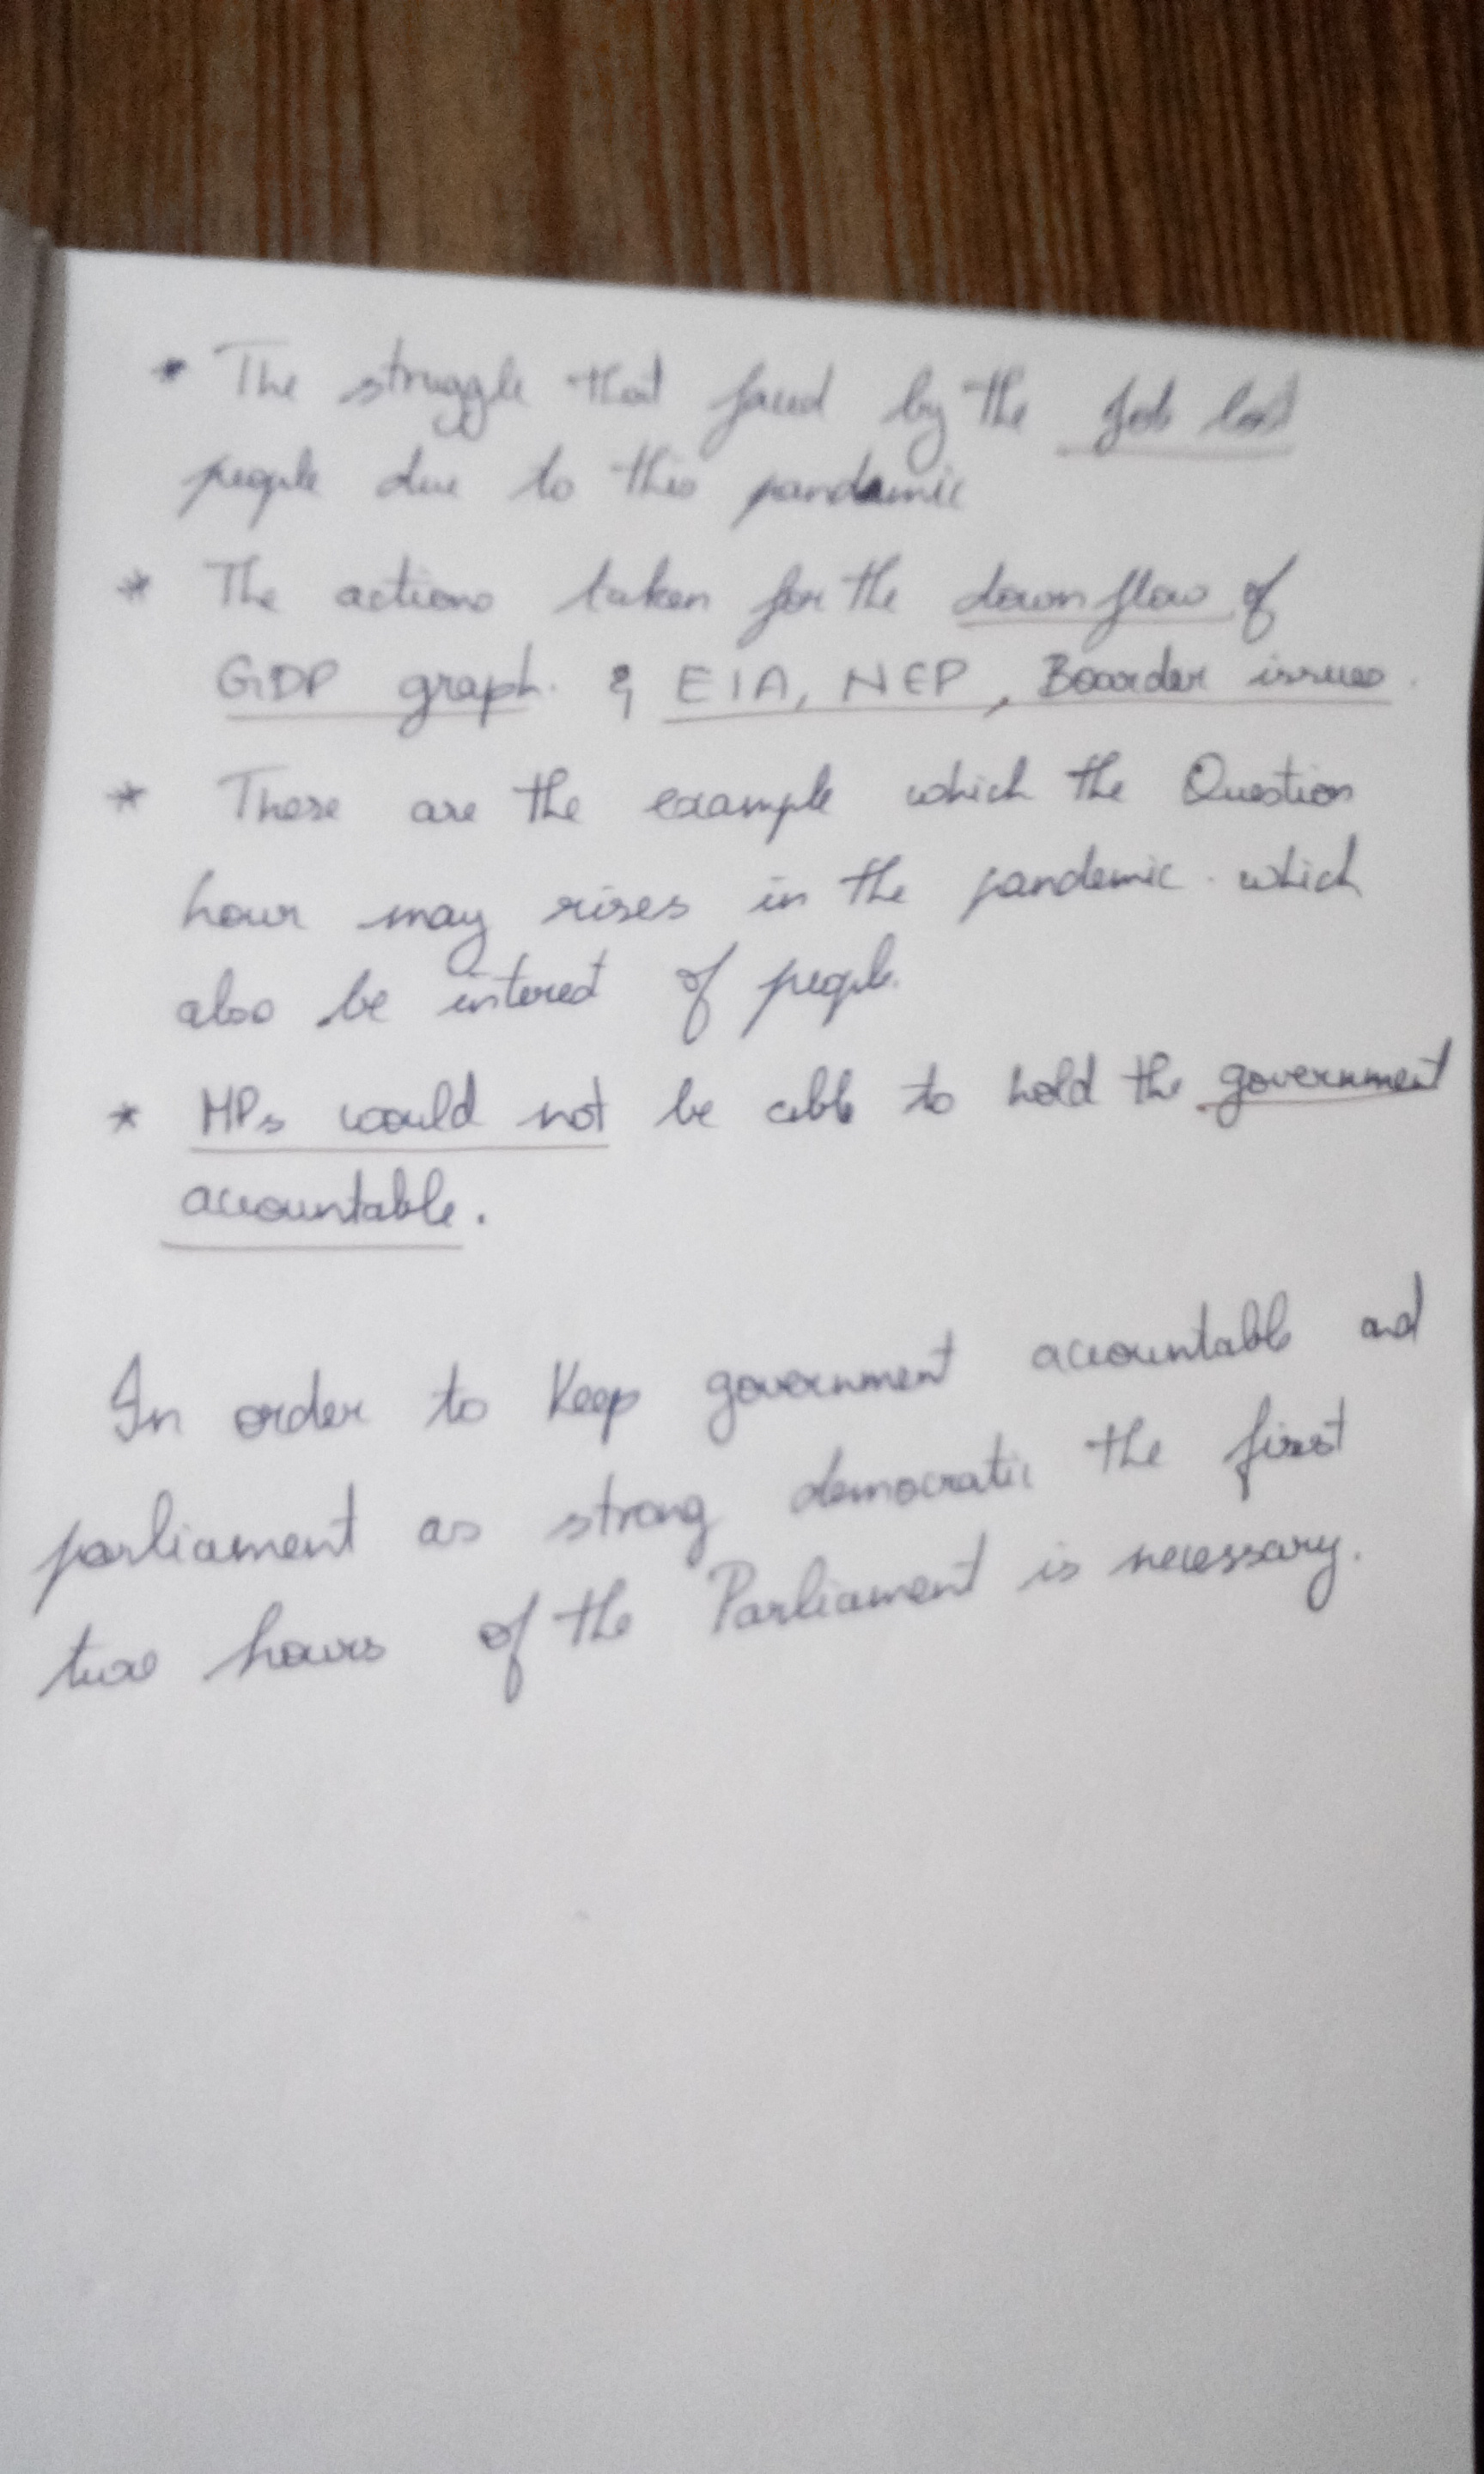 * The struggle that faced by the Job lost
people due to this pandamic
* The actions taken for the downflow of
GDP graph. & EIA, NEP, Boarder issues.
* These are the example which the Question
hour may rises in the pandemic. which
also be interest of people.
* MPs would not be able to hold the government
accountable.
In order to Keep government accountable and
parliament as strong democratic the first
two hours of the Parliament is necessary.